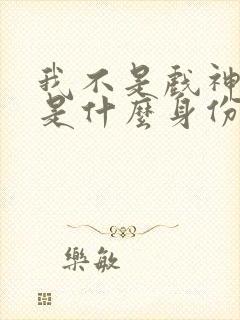 我不是戲神
是什麼身份
樂敏